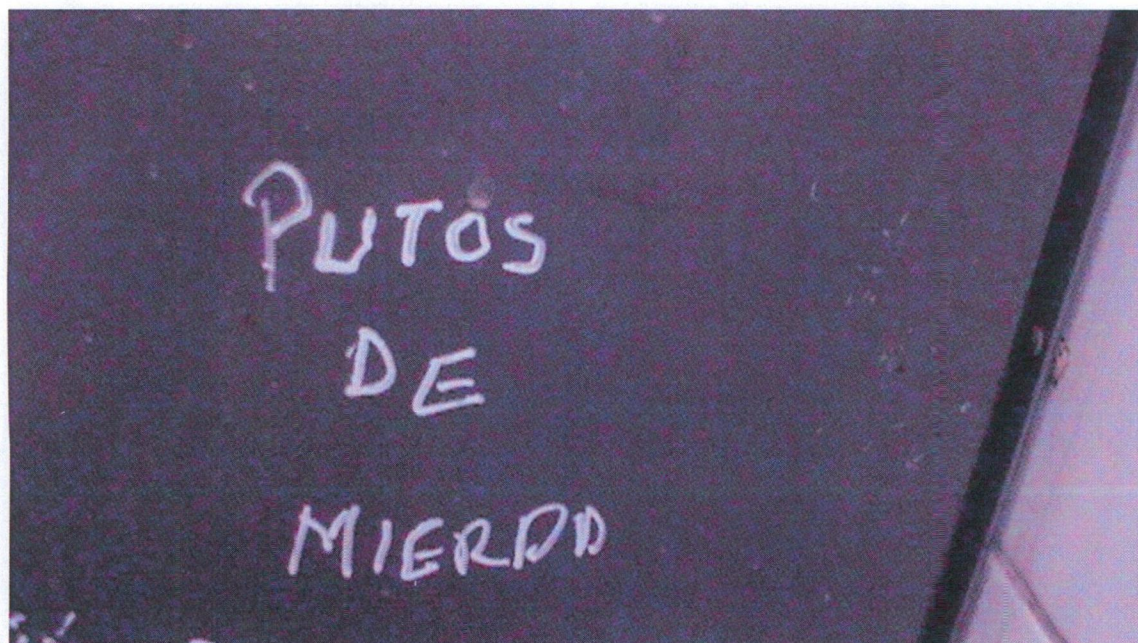 PUTOS
DE
MIERDA